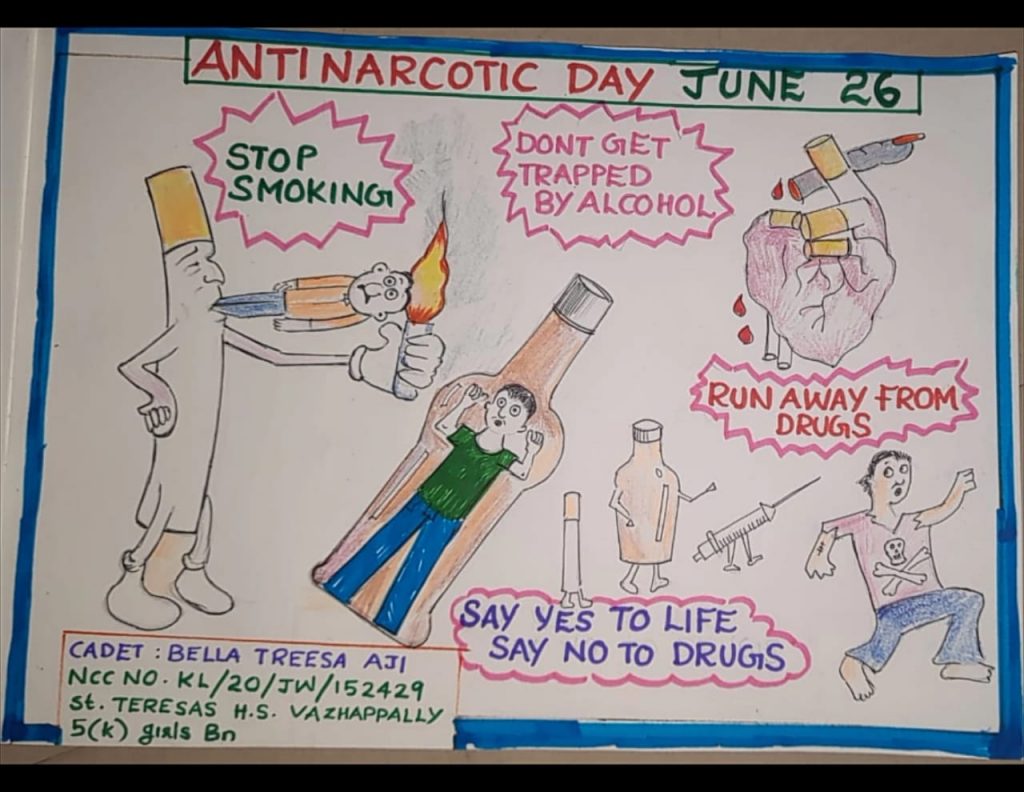 ANTINARCOTIC DAY JUNE 26
STOP
SMOKING
DONT GET
TRAPPED
BY ALCOHOL
RUN AWAY FROM
DRUGS
SAY YES TO LIFE
SAY NO TO DRUGS
CADET : BELLA TREESA AJI
NCC NO. KL/20/JW/152429
St. TERESAS H.S. VAZHAPPALLY
5(K) girls Bn